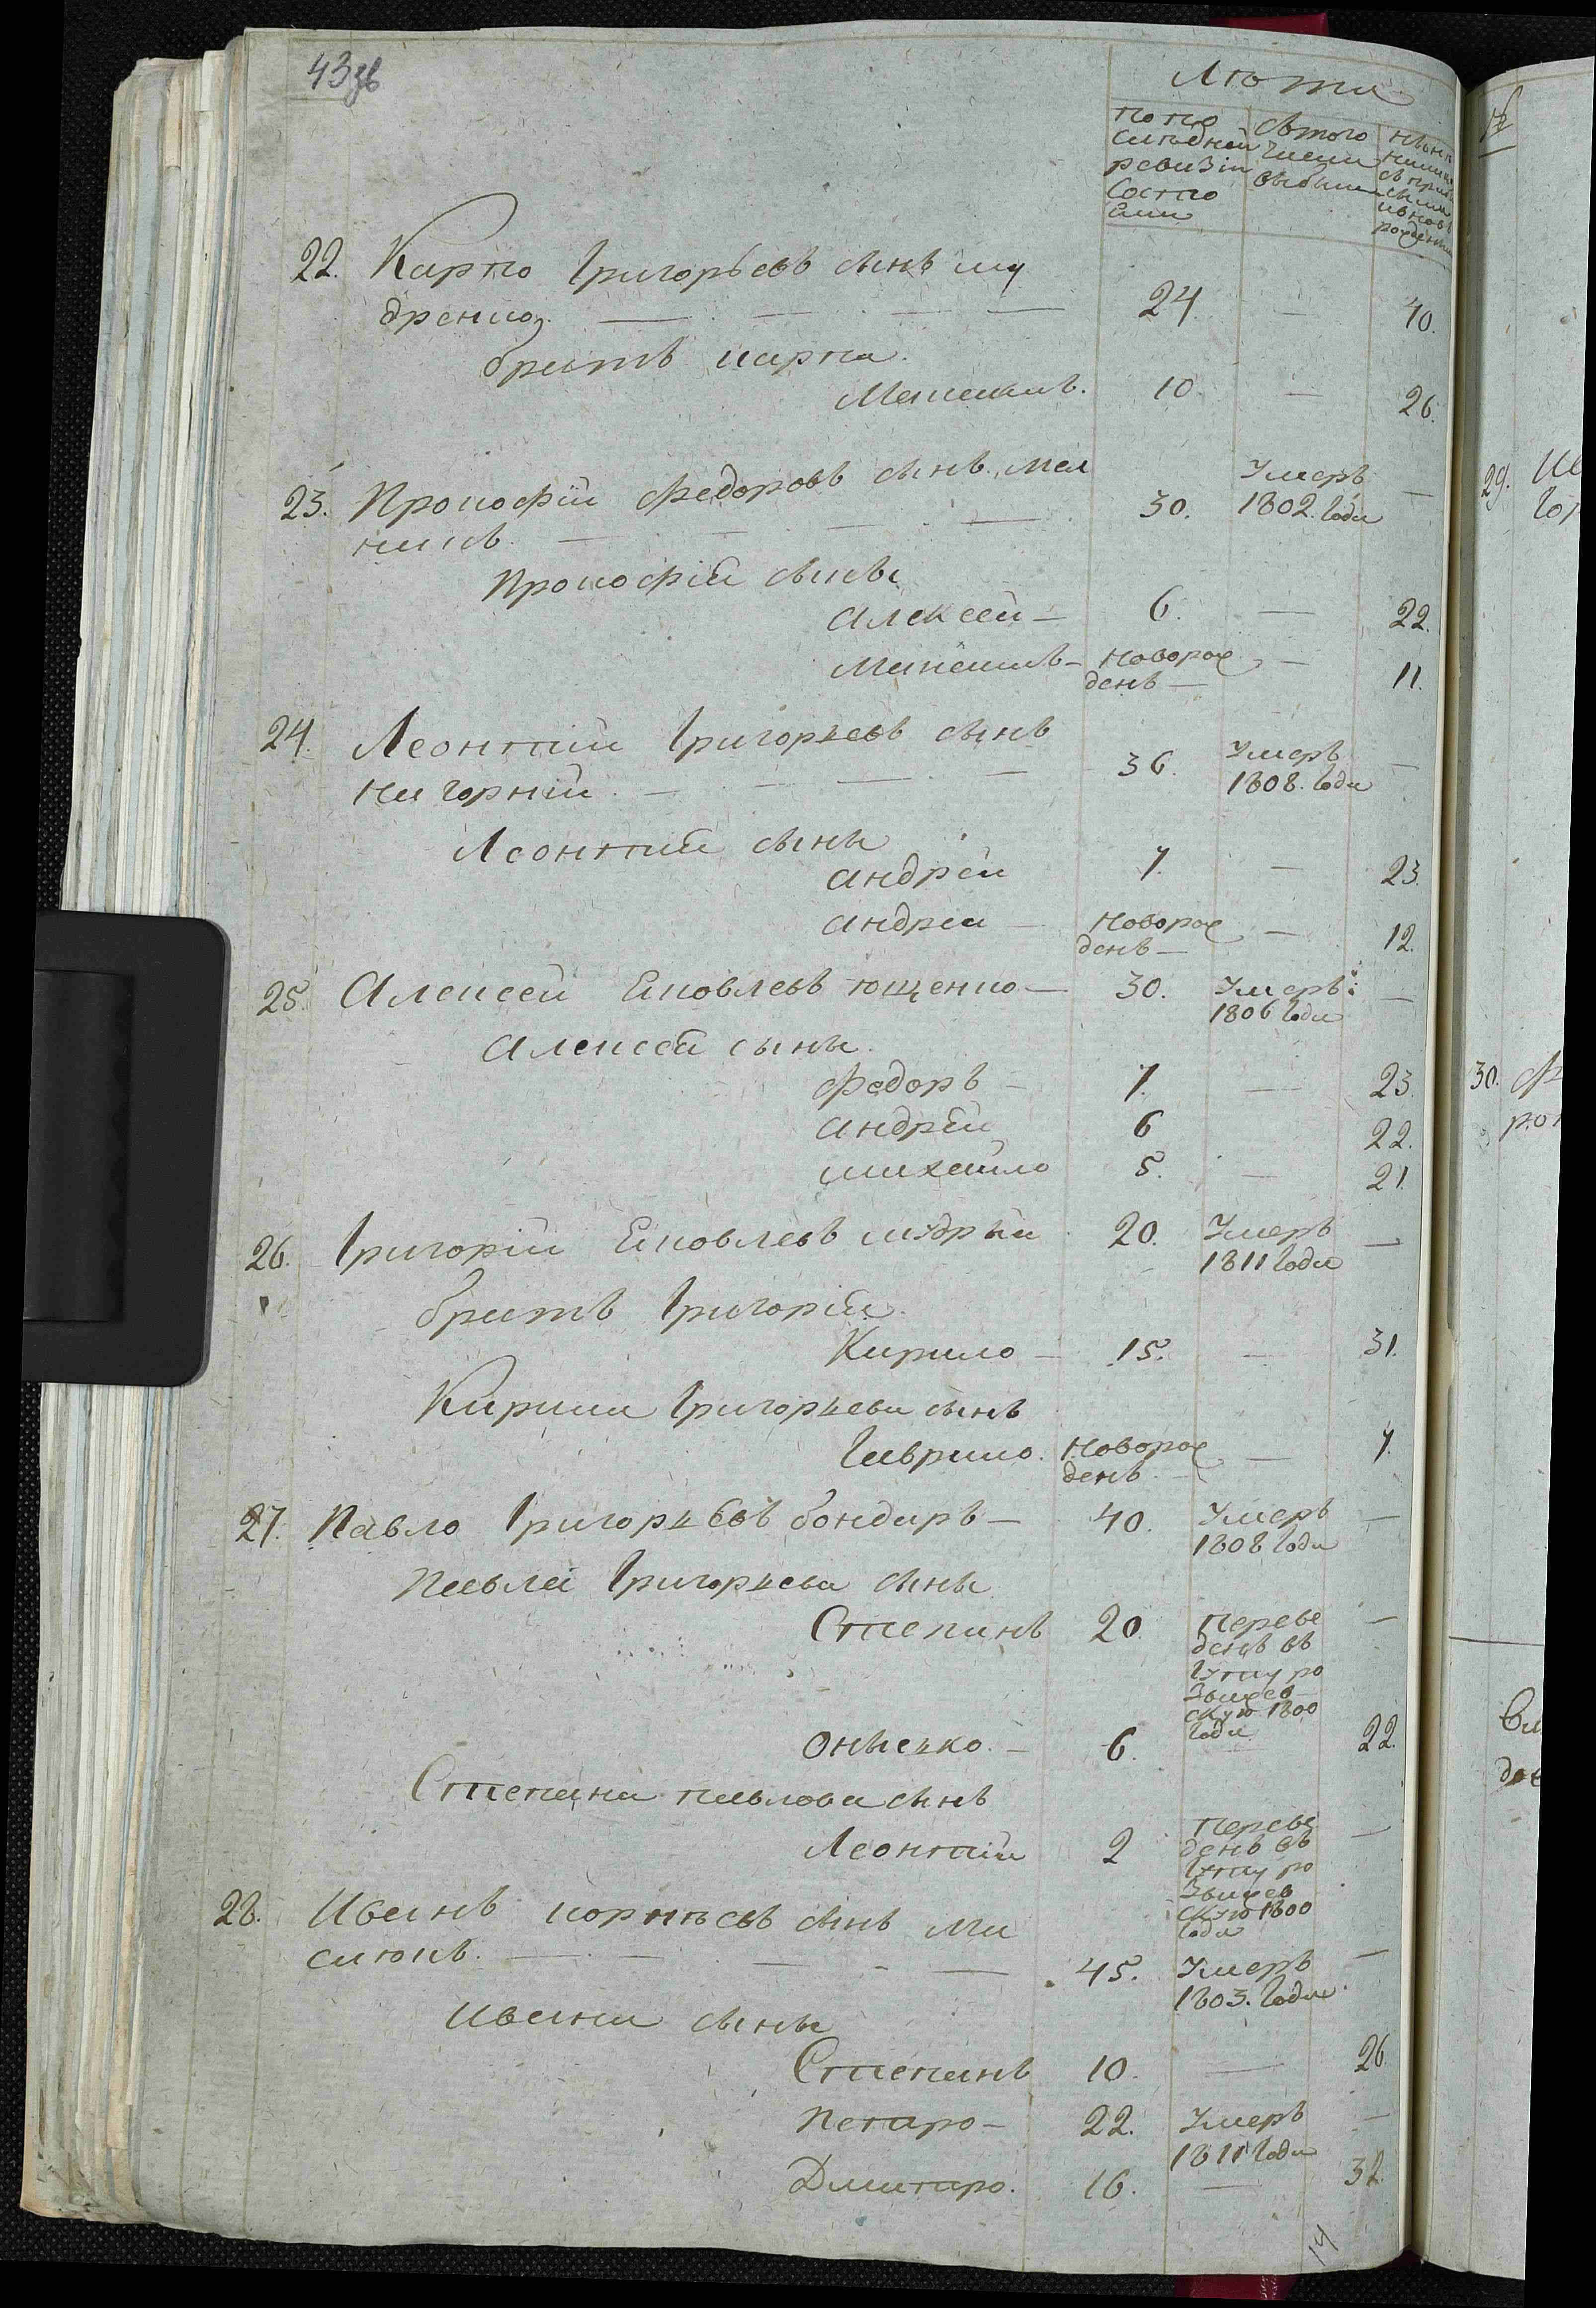 43зв
Лѣта
по по
слѣдней
ревизіи
состо
яли
съ того
числа
выбыли
нынѣ
22. Карпо Григорьевъ сынъ му
дренко 24. — 40.
братъ карпа.
Максимъ. 10. — 26.
23. Прокофій Федоровъ сынъ мел
никъ. 30. Умеръ —
1802. года
Прокофія сыны
Алексей — 6. — 22.
Максимъ — Новорож — 11.
денъ —
24. Леонтий Григорьевъ сынъ
нагорній. 36. Умеръ —
1808. года
Леонтия сыны
андрей 7. — 23.
андрей — Новорож — 12.
денъ —
25. Алексей Яковлевъ ющенко — 30. Умеръ —
1806 года
Алексея сыны.
Федоръ — 7. — 23.
андрей 6 22.
михайло 5. — 21.
26. Григорій Яковлевъ мудрый 20. Умеръ —
1811 года
братъ Григорія.
Кирило — 15. — 31.
Кирила Григорьева сынъ
Гаврило. Новорож — 7.
денъ —
27. Павло Григорьевъ бондарь — 40. Умеръ —
1808 года
Павла Григорьева сыны
Степанъ 20. переве —
денъ въ
1800
года
Онисько. — 6. 22.
Степана павлова сынъ
Леонтий 2 переве —
денъ въ
1800
года
28. Иванъ корнѣевъ сынъ ма
сюкъ. 45. Умеръ —
1803. года
Ивана сыны
Степанъ 10. — 26
Петро — 22. Умеръ —
1811 года
Дмитро. 16. — 32.
14
29.
30.